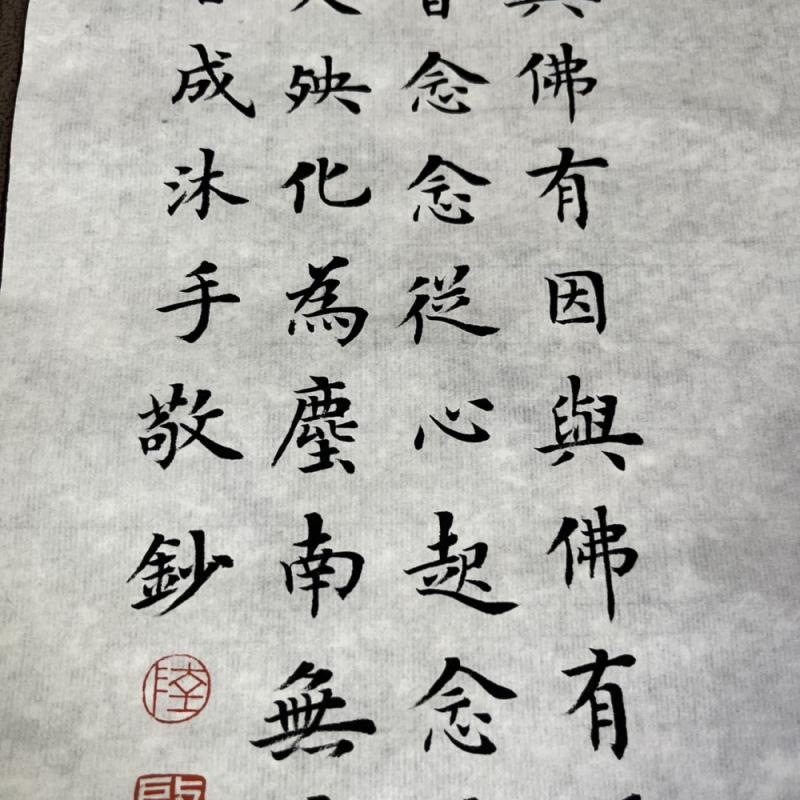 與佛有因與佛有
念念從心起念
殃化為塵南無
成沐手敬鈔
陸